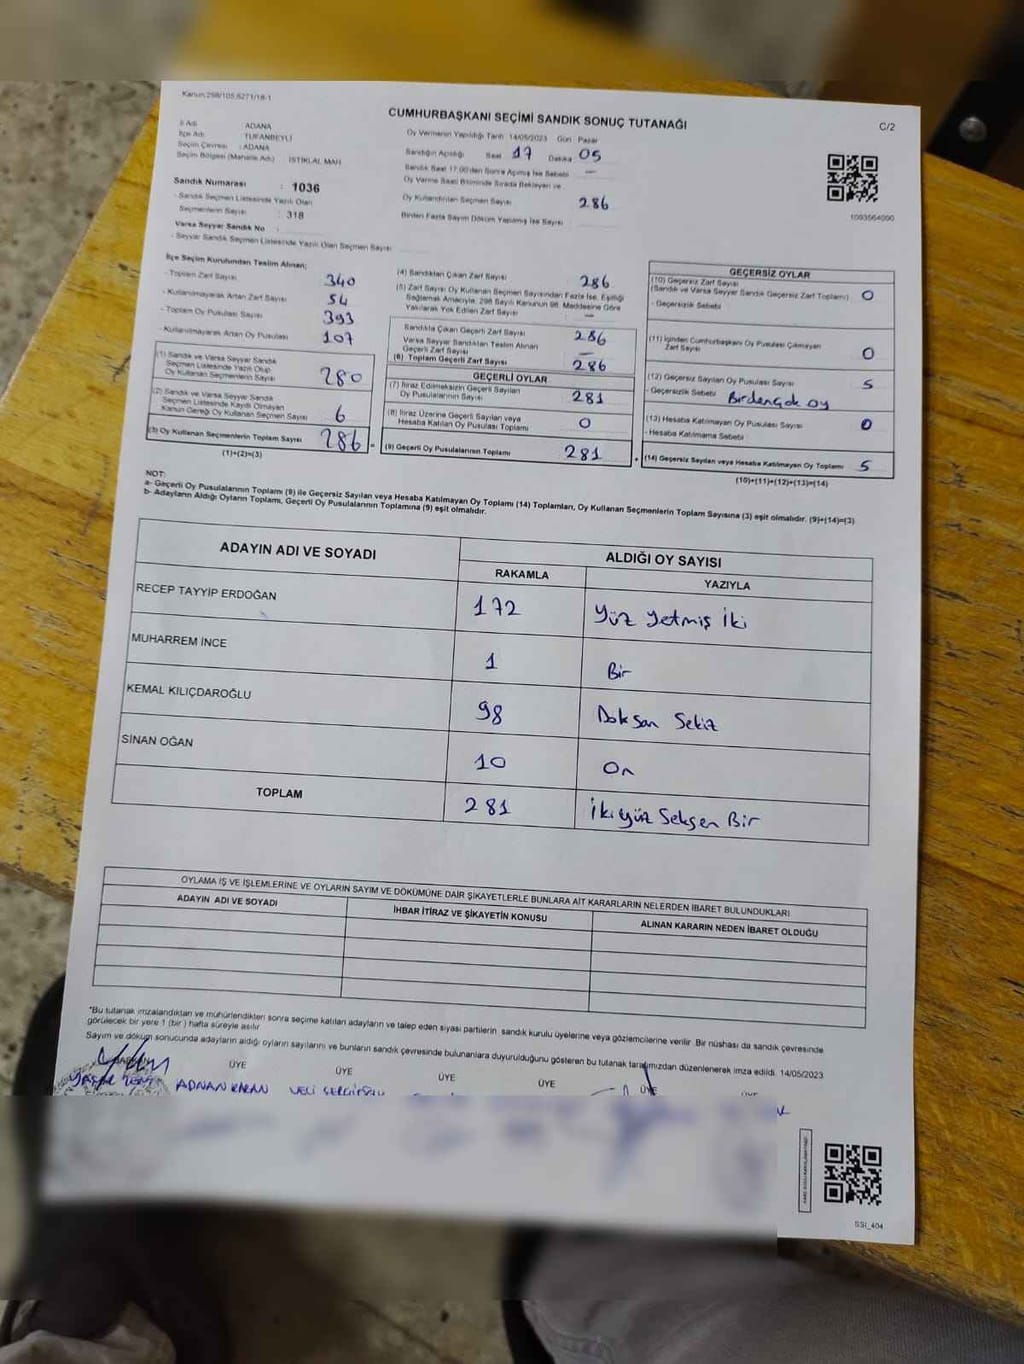 Kanun 298/105,6271/18-1
CUMHURBAŞKANI SEÇİMİ SANDIK SONUÇ TUTANAĞI
C/2
İl Adı ADANA
İlçe Adı TUFANBEYLİ
Seçim Çevresi : ADANA
Seçim Bölgesi (Mahalle Adı) İSTİKLAL MAH
Sandık Numarası : 1036
- Sandık Seçmen Listesinde Yazılı Olan
Seçmenlerin Sayısı : 318
Varsa Seyyar Sandık No
- Seyyar Sandık Seçmen Listesinde Yazılı Olan Seçmen Sayısı
Oy Vermenin Yapıldığı Tarih 14/05/2023 Gün Pazar
Sandığın Açıldığı Saat 17 Dakika 05
Sandık Saat 17:00'den Sonra Açılmış İse Sebebi —
Oy Verme Saati Bitiminde Sırada Bekleyen ve
Oy Kullandırılan Seçmen Sayısı 286
Birden Fazla Sayım Döküm Yapılmış İse Sayısı
1003564000
İlçe Seçim Kurulundan Teslim Alınan;
- Toplam Zarf Sayısı 340
- Kullanılmayarak Artan Zarf Sayısı 54
- Toplam Oy Pusulası Sayısı 393
- Kullanılmayarak Artan Oy Pusulası 107
(1) Sandık ve Varsa Seyyar Sandık
Seçmen Listesinde Yazılı Olup
Oy Kullanan Seçmenlerin Sayısı 280
(2) Sandık ve Varsa Seyyar Sandık
Seçmen Listesinde Kayıtlı Olmayan
Kanun Gereği Oy Kullanan Seçmen Sayısı 6
(3) Oy Kullanan Seçmenlerin Toplam Sayısı 286 =
(1)+(2)=(3)
(4) Sandıktan Çıkan Zarf Sayısı 286
(5) Zarf Sayısı Oy Kullanan Seçmen Sayısından Fazla İse, Eşitliği
Sağlamak Amacıyla, 298 Sayılı Kanunun 98. Maddesine Göre
Yakılarak Yok Edilen Zarf Sayısı —
Sandıkta Çıkan Geçerli Zarf Sayısı 286
Varsa Seyyar Sandıktan Teslim Alınan
Geçerli Zarf Sayısı —
(6) Toplam Geçerli Zarf Sayısı 286
GEÇERLİ OYLAR
(7) İtiraz Edilmeksizin Geçerli Sayılan
Oy Pusulalarının Sayısı 281
(8) İtiraz Üzerine Geçerli Sayılan veya
Hesaba Katılan Oy Pusulası Toplamı 0
(9) Geçerli Oy Pusulalarının Toplamı 281 +
GEÇERSİZ OYLAR
(10) Geçersiz Zarf Sayısı
(Sandık ve Varsa Seyyar Sandık Geçersiz Zarf Toplamı) 0
- Geçersizlik Sebebi
(11) İçinden Cumhurbaşkanı Oy Pusulası Çıkmayan
Zarf Sayısı 0
(12) Geçersiz Sayılan Oy Pusulası Sayısı 5
- Geçersizlik Sebebi Birdençok oy
(13) Hesaba Katılmayan Oy Pusulası Sayısı 0
- Hesaba Katılmama Sebebi
(14) Geçersiz Sayılan veya Hesaba Katılmayan Oy Toplamı 5
(10)+(11)+(12)+(13)=(14)
NOT:
a- Geçerli Oy Pusulalarının Toplamı (9) ile Geçersiz Sayılan veya Hesaba Katılmayan Oy Toplamı (14) Toplamları, Oy Kullanan Seçmenlerin Toplam Sayısına (3) eşit olmalıdır. (9)+(14)=(3)
b- Adayların Aldığı Oyların Toplamı, Geçerli Oy Pusulalarının Toplamına (9) eşit olmalıdır.
ADAYIN ADI VE SOYADI
ALDIĞI OY SAYISI
RAKAMLA YAZIYLA
RECEP TAYYİP ERDOĞAN 172 Yüz Yetmiş İki
MUHARREM İNCE 1 Bir
KEMAL KILIÇDAROĞLU 98 Doksan Sekiz
SİNAN OĞAN 10 On
TOPLAM 281 İkiyüz Seksen Bir
OYLAMA İŞ VE İŞLEMLERİNE VE OYLARIN SAYIM VE DÖKÜMÜNE DAİR ŞİKAYETLERLE BUNLARA AİT KARARLARIN NELERDEN İBARET BULUNDUKLARI
ADAYIN ADI VE SOYADI İHBAR İTİRAZ VE ŞİKAYETİN KONUSU ALINAN KARARIN NEDEN İBARET OLDUĞU
*Bu tutanak imzalandıktan ve mühürlendikten sonra seçime katılan adayların ve talep eden siyasi partilerin sandık kurulu üyelerine veya gözlemcilerine verilir. Bir nüshası da sandık çevresinde
görülecek bir yere 1 (bir) hafta süreyle asılır
Sayım ve döküm sonucunda adayların aldığı oyların sayılarını ve bunların sandık çevresinde bulunanlara duyurulduğunu gösteren bu tutanak tarafımızdan düzenlenerek imza edildi. 14/05/2023
ÜYE ÜYE ÜYE ÜYE ÜYE
ADNAN KARAN VELİ
SSI_404